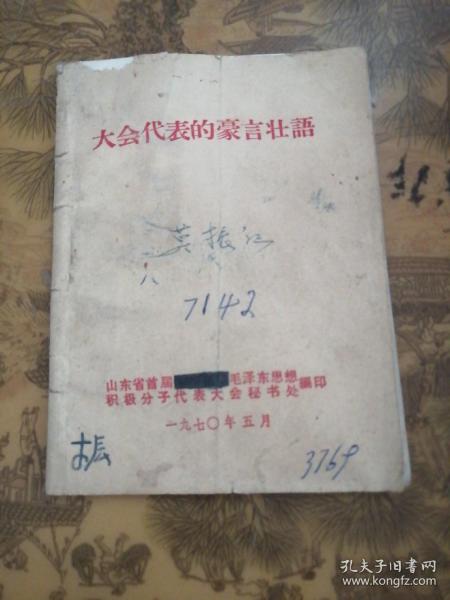 大会代表的豪言壮語
莫振江
八
7142
山东省首届 毛泽东思想
积极分子代表大会秘书处 編印
一九七〇年五月
振
3769
孔夫子旧书网
www.kongfz.com